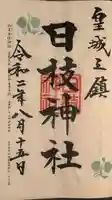 皇城之鎮
日枝神社
令和二年八月十五日